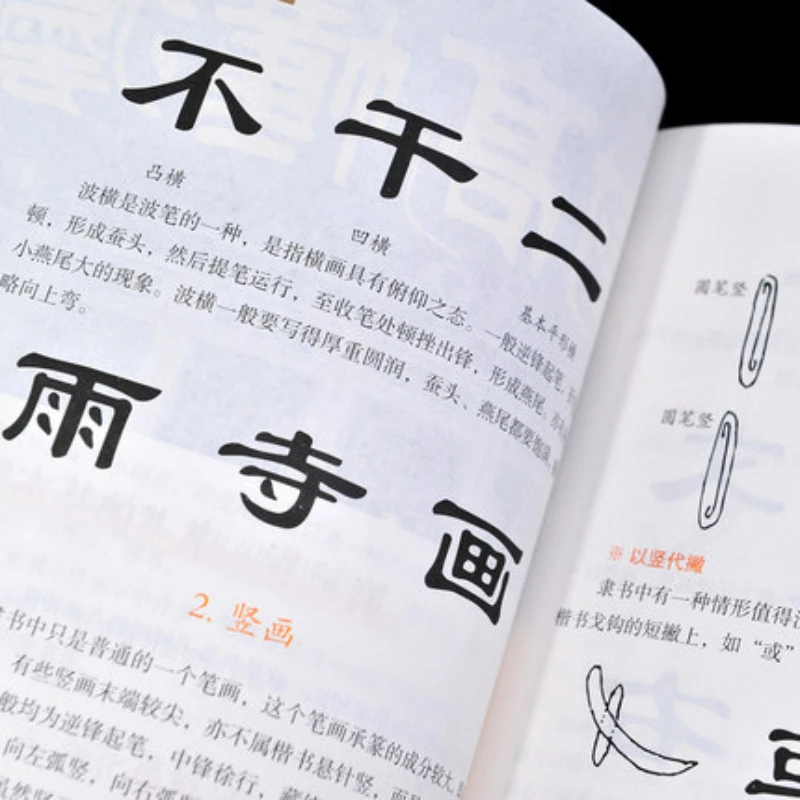 不 干 二
凸横
凹横
基本平形横
波横是波笔的一种，是指横画具有俯仰之态。一般逆锋起笔，
顿，形成蚕头，然后提笔运行，至收笔处顿挫出锋，形成燕尾，
小燕尾大的现象。波横一般要写得厚重圆润，蚕头、燕尾都要饱满，
略向上弯。
雨 寺 画
2. 竖画
隶书中只是普通的一个笔画，这个笔画承篆的成分较大，
有些竖画末端较尖，亦不属楷书悬针竖，而
般均为逆锋起笔，中锋徐行，藏
向左弧竖，向右弧
圆笔竖
圆笔竖
※ 以竖代撇
隶书中有一种情形值得
楷书戈钩的短撇上，如“或”